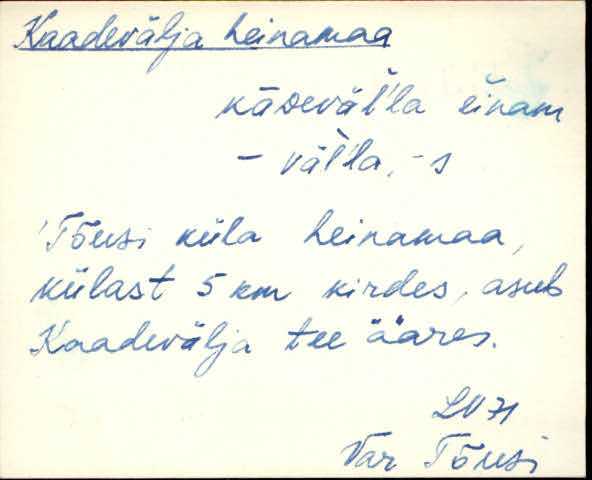 Kaadevälja heinamaa
kāᴅeväl'l'a èinam
- väl'l'a, -s
'Tõusi küla heinamaa,
külast 5 km kirdes, asub
Kaadevälja tee ääres.
LV 71
Var Tõusi